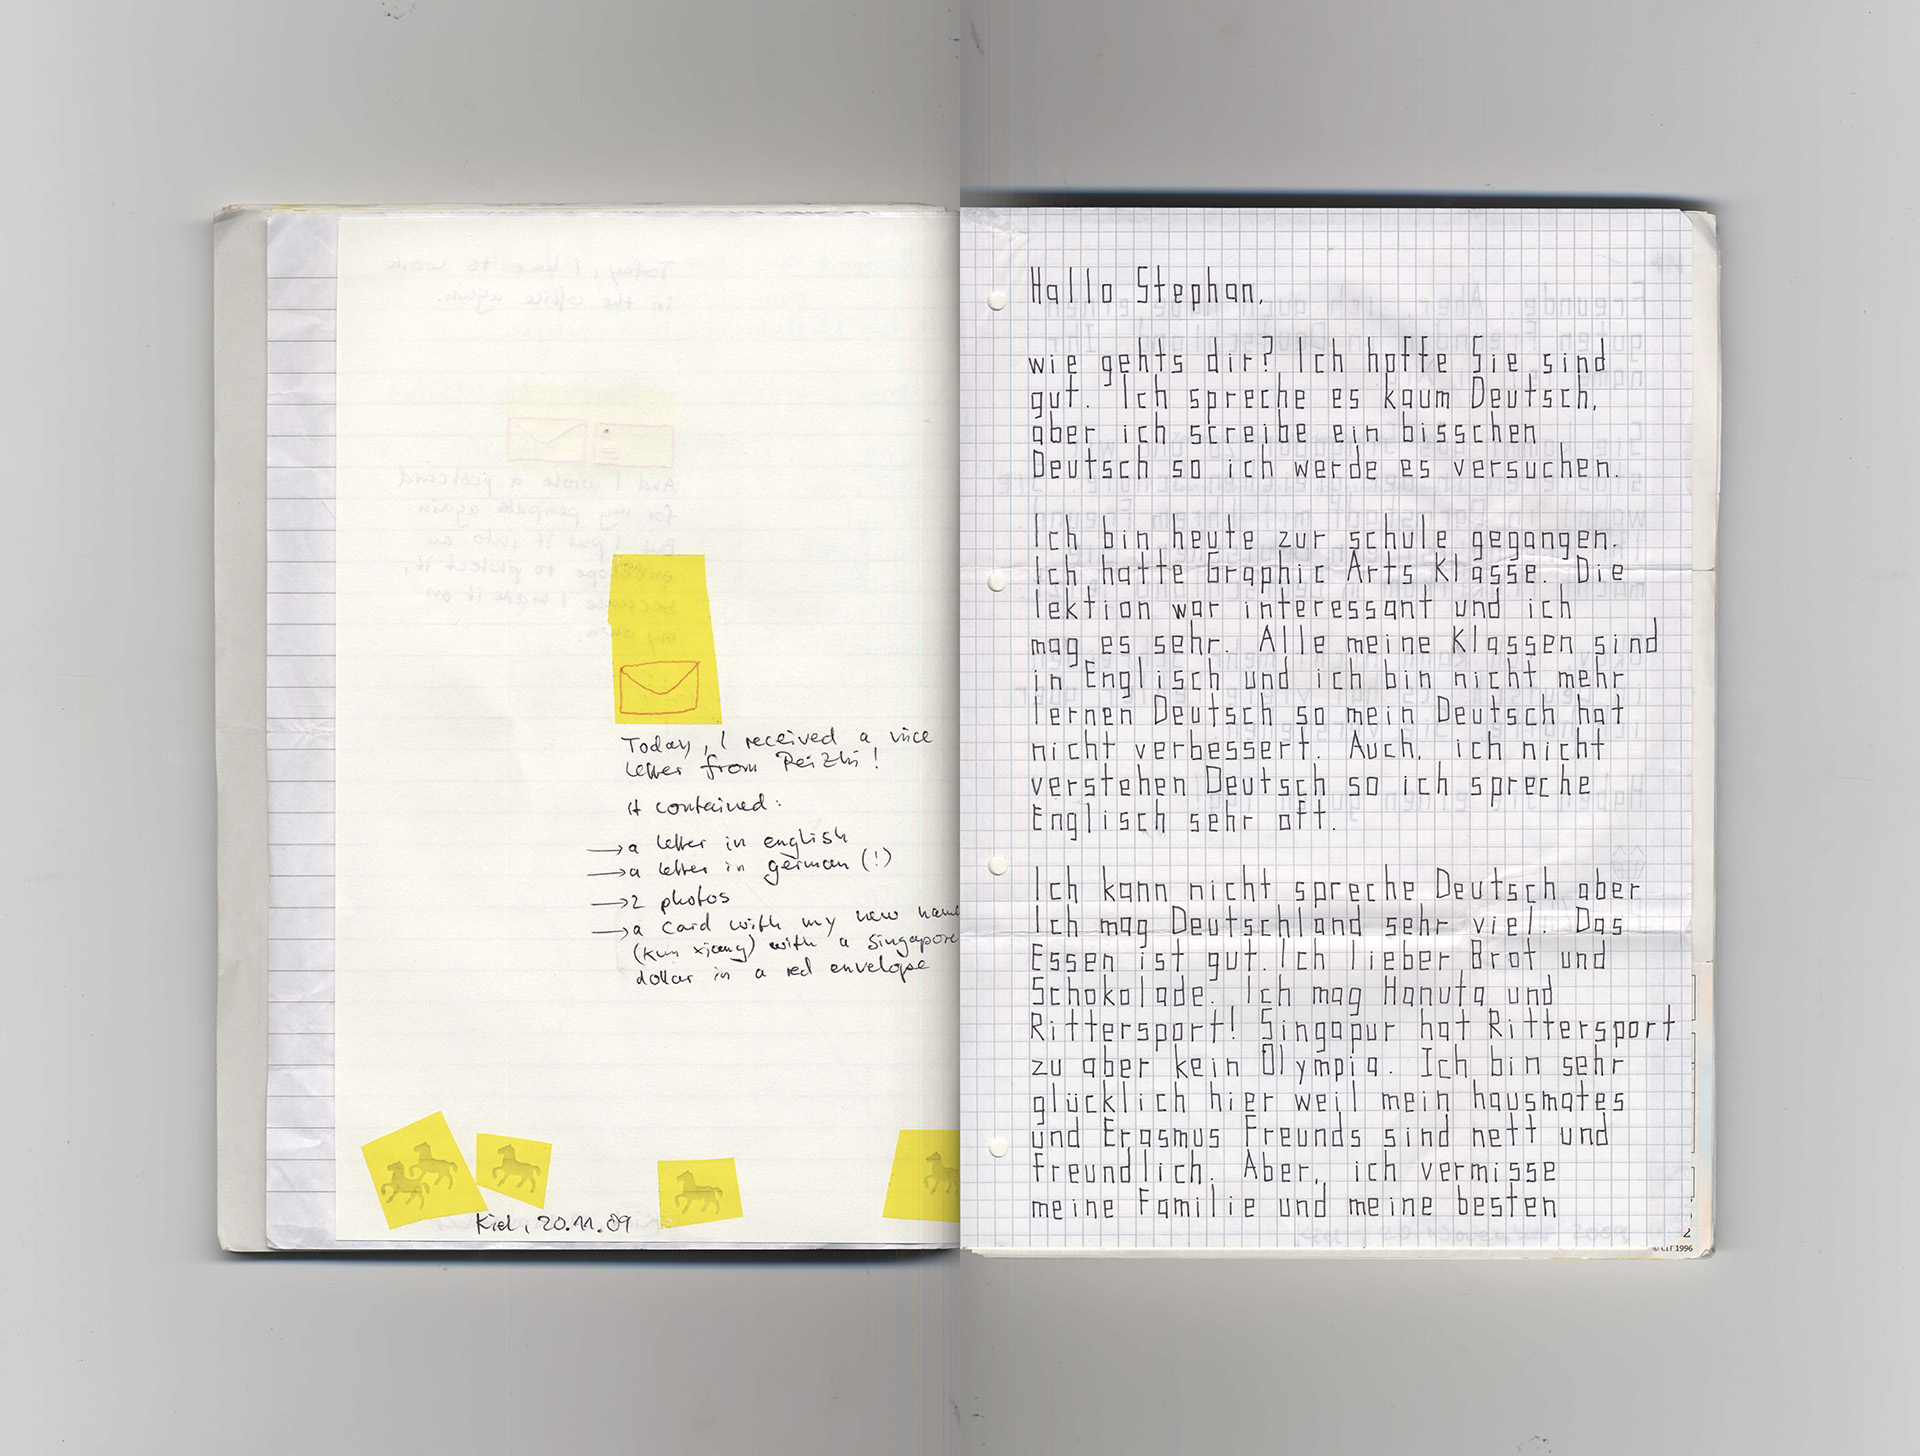 Today, I received a nice
letter from PeiZhi!
it contained:
→ a letter in english
→ a letter in german (!)
→ 2 photos
→ a card with my new name
(kun xiang) with a Singapore
dollar in a red envelope
Kiel, 20.11.09
Hallo Stephan,
wie gehts dir? Ich hoffe Sie sind
gut. Ich spreche es kaum Deutsch,
aber ich screibe ein bisschen
Deutsch so ich werde es versuchen.
Ich bin heute zur schule gegangen.
Ich hatte Graphic Arts Klasse. Die
lektion war interessant und ich
mag es sehr. Alle meine Klassen sind
in Englisch und ich bin nicht mehr
lernen Deutsch so mein Deutsch hat
nicht verbessert. Auch, ich nicht
verstehen Deutsch so ich spreche
Englisch sehr oft.
Ich kann nicht spreche Deutsch aber
Ich mag Deutschland sehr viel. Das
Essen ist gut. Ich lieber Brot und
Schokolade. Ich mag Hanuta und
Rittersport! Singapur hat Rittersport
zu aber kein Olympia. Ich bin sehr
glücklich hier weil mein hausmates
und Erasmus Freunds sind nett und
freundlich. Aber, ich vermisse
meine Familie und meine besten
2
1996